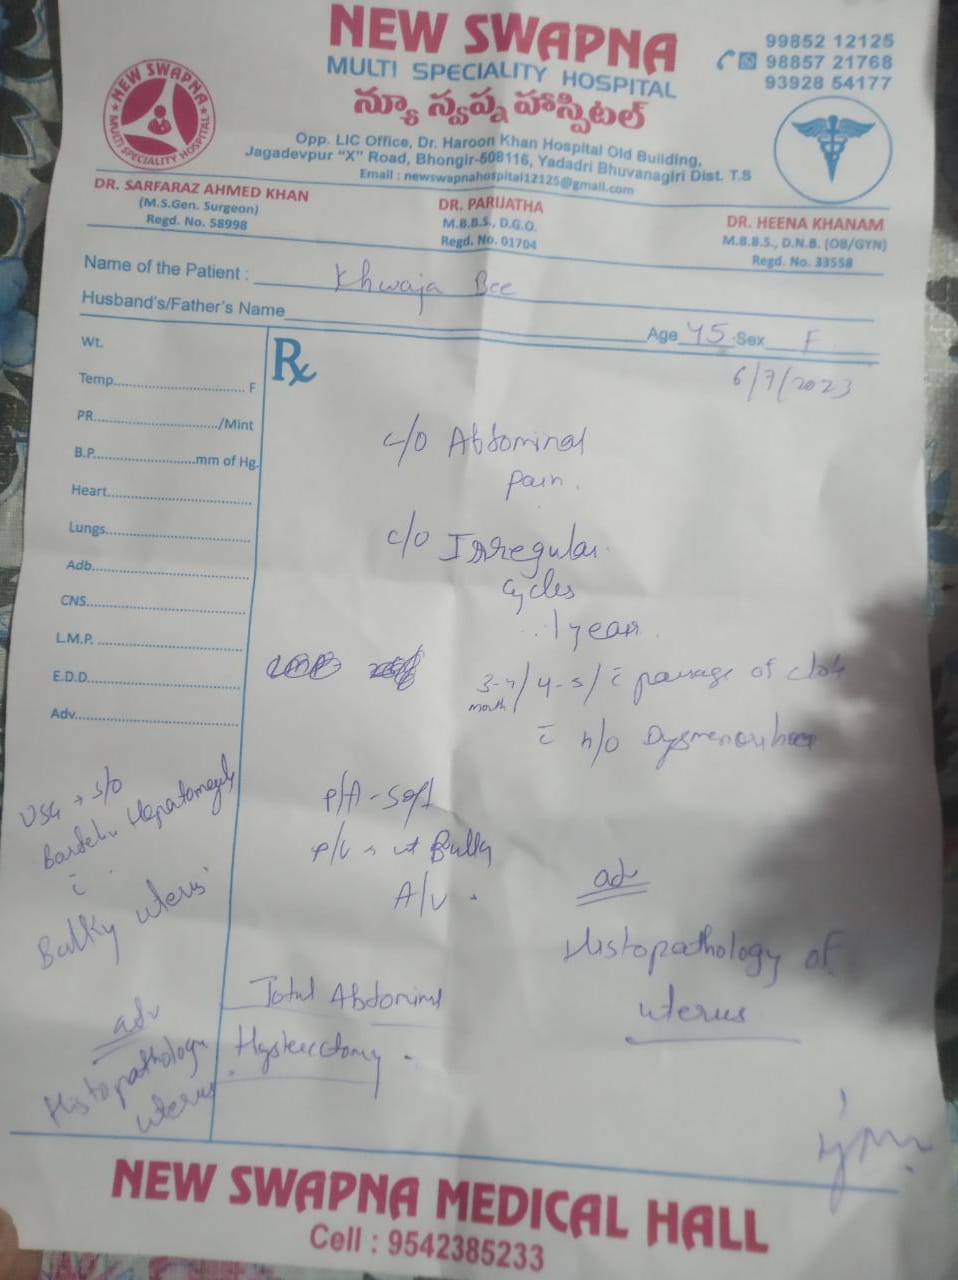 NEW SWAPNA
MULTI SPECIALITY HOSPITAL
న్యూ స్వప్న హాస్పిటల్
99852 12125
98857 21768
93928 54177
NEW SWAPNA
MULTI SPECIALITY HOSPITAL
Opp. LIC Office, Dr. Haroon Khan Hospital Old Building,
Jagadevpur "X" Road, Bhongir-508116, Yadadri Bhuvanagiri Dist. T.S
Email : newswapnahospital12125@gmail.com
DR. SARFARAZ AHMED KHAN
(M.S.Gen. Surgeon)
Regd. No. 58998
DR. PARIJATHA
M.B.B.S., D.G.O.
Regd. No. 01704
DR. HEENA KHANAM
M.B.B.S., D.N.B. (OB/GYN)
Regd. No. 33558
Name of the Patient : Khwaja Bee
Husband's/Father's Name
Age 45 Sex F
6/7/2023
Rx
Wt.
Temp. F
PR. /Mint
B.P. mm of Hg.
Heart
Lungs
Adb
CNS
L.M.P.
E.D.D.
Adv
c/o Abdominal
pain.
c/o Irregular
cycles
1 year
4-5/ c̄ passage of clots
month
c̄ h/o Dysmenorrhoea
P/A - Soft
P/V ut Bulky
A/V.
USG → s/o
Hepatomegaly
c̄
Bulky uterus
adv
Histopathology of
uterus
Total Abdominal
Hysterectomy.
adv
Histopathology
uterus.
NEW SWAPNA MEDICAL HALL
Cell : 9542385233